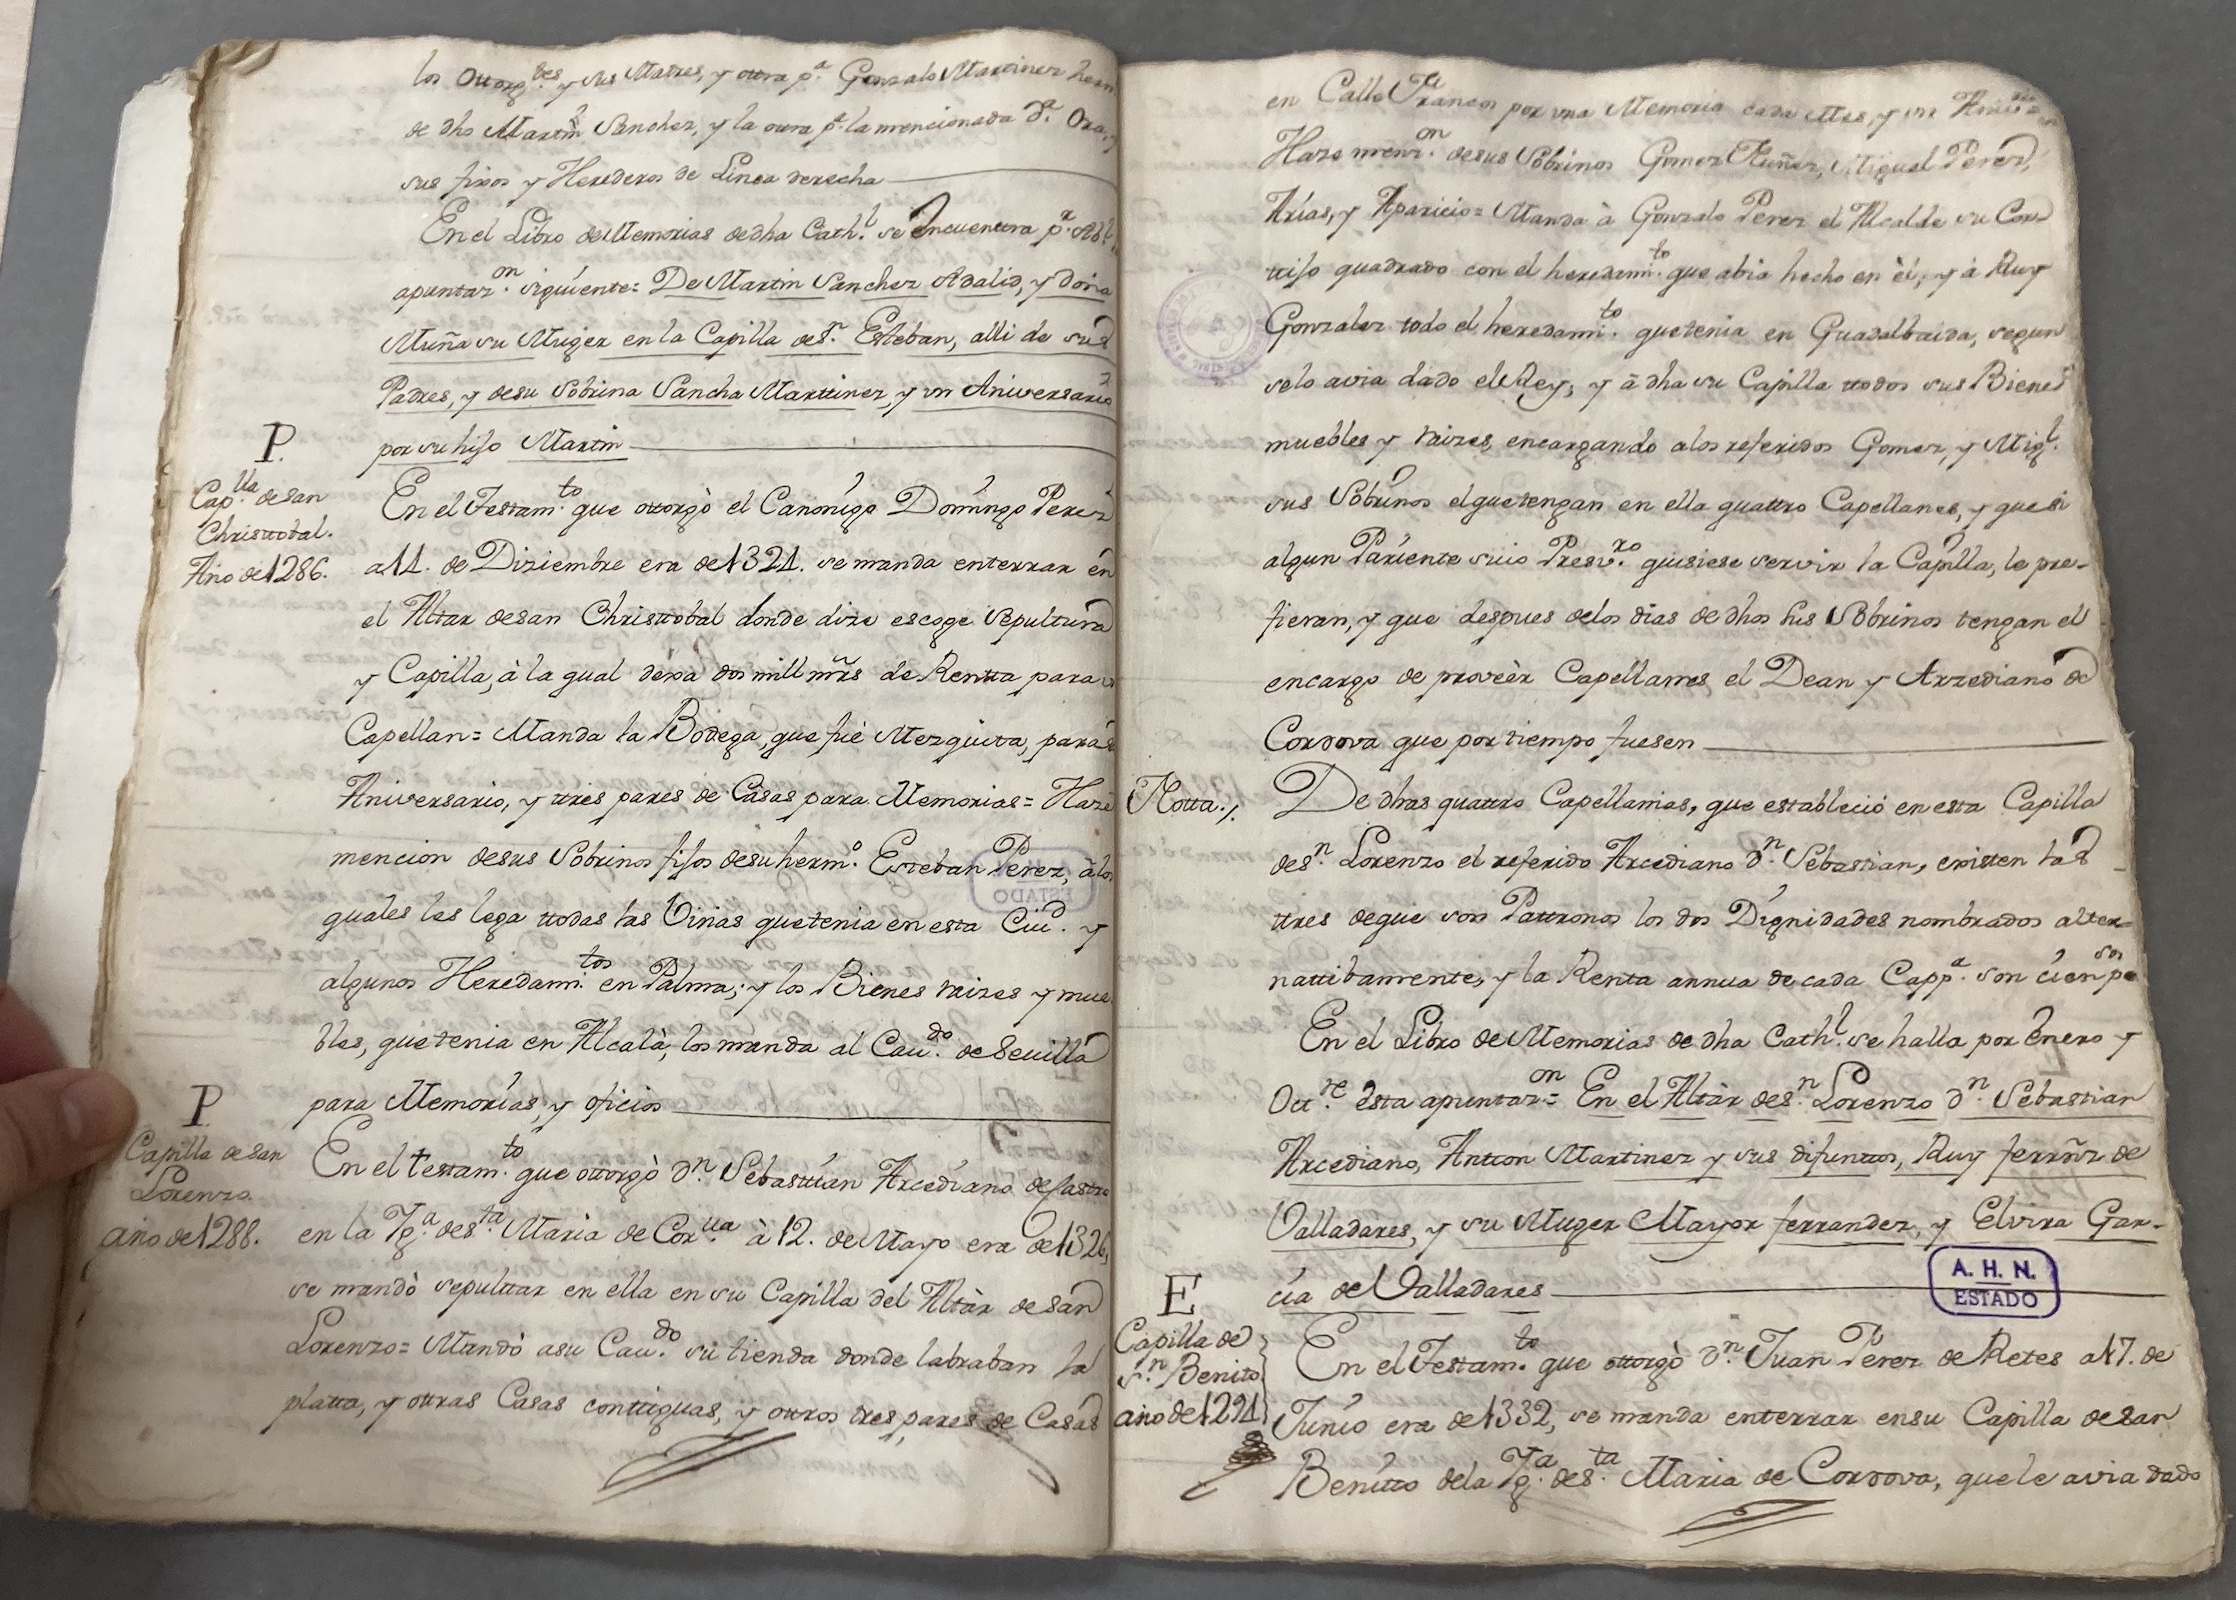 los Otorg.des y sus Madres, y otra p.a Gonzalo Martinez herm
de dho Martin Sanchez, y la otra p.a la mencionada D.a Ora, y
sus fixos y Herederos de Linea derecha
En el Libro de Memorias de dha Cath.l se encuentra p.r Ab.l
apuntaz.on siguiente= De Martin Sanchez Adalid, y doña
Muña su Muger en la Capilla de S.n Esteban, alli de sus
Padres, y de su Sobrina Sancha Marttinez, y un Aniversario
por su hijo Martin
P.
Cap.lla de San
Christtobal.
Año de 1286.
En el Testam.to que ottorgò el Canonigo Domingo Perez
a 11. de Diziembre era de 1321. se manda enterrar en
el Altar de San Christtobal donde dize escoge Sepultura
y Capilla, à la qual dexa dos mill mrs de Rentta para
Capellan= Manda la Bodega, que fuè Mezquita, para
Aniversario, y ttres pares de Casas para Memorias= Haze
mencion de sus Sobrinos fijos de su herm.o Esteban Perez, à los
quales les lega ttodas las Viñas que tenia en esta Ciud. y
algunos Heredam.tos en Palma; y los Bienes raizes y mue
bles, que tenia en Alcalà, los manda al Cav.do de Sevilla
para Memorias, y oficios
P.
Capilla de San
Lorenzo.
año de 1288.
En el testam.to que ottorgò D.n Sebasttian Arcediano de Castro
en la Yg.a de S.ta Maria de Cor.va à 12. de Mayo era de 1326,
se mandò sepulttar en ella en su Capilla del Altàr de San
Lorenzo= Mandò a su Cav.do su tienda donde labraban la
platta, y ottras Casas conttiguas, y ottros tres pares de Casas
en Calle Francos por una Memoria cada Mes, y un Aniv.rio
Haze menz.on de sus Sobrinos Gomez Nuñez, Miguel Perez,
Arias, y Aparicio= Manda à Gonzalo Perez el Alcalde su Cor
ttijo quadrado con el heredam.to que abia hecho en èl; y à Ruy
Gonzalez todo el heredami.to que tenia en Guadalbaida, segun
se lo avia dado el Rey; y à dha su Capilla ttodos sus Bienes
muebles y raizes, encargando a los referidos Gomez, y Mig.l
sus Sobrinos el que tengan en ella quattro Capellanes, y que si
algun Pariente suio Presv.ro quisiese servir la Capilla, le pre-
fieran, y que despues de los dias de dhos sus Sobrinos tengan el
encargo de proveèr Capellanes el Dean y Arzediano de
Cordova que por tiempo fuesen
Notta./.
De dhas quattro Capellanias, que estableciò en esta Capilla
de S.n Lorenzo el referido Arcediano D.n Sebastian, existen las
ttres de que son Pattronos los dos Dignidades nombrados alter-
nattibamente, y la Renta annua de cada Capp.a son cien p.sos
En el Libro de Memorias de dha Cath.l se halla por Enero y
Oct.re esta apuntaz.on= En el Altàr de S.n Lorenzo D.n Sebastian
Arcediano, Antton Martinez y sus difunttos, Ruy ferrñz de
Valladares, y su Muger Mayor ferrandez, y Elvira Gar-
cia de Valladares
A. H. N.
ESTADO
E
Capilla de
S.n Benito
año de 1294
En el Testam.to que ottorgò D.n Juan Perez de Retes a 17. de
Junio era de 1332, se manda enterrar en su Capilla de San
Benitto de la Yg.a de S.ta Maria de Cordova, que le avia dado